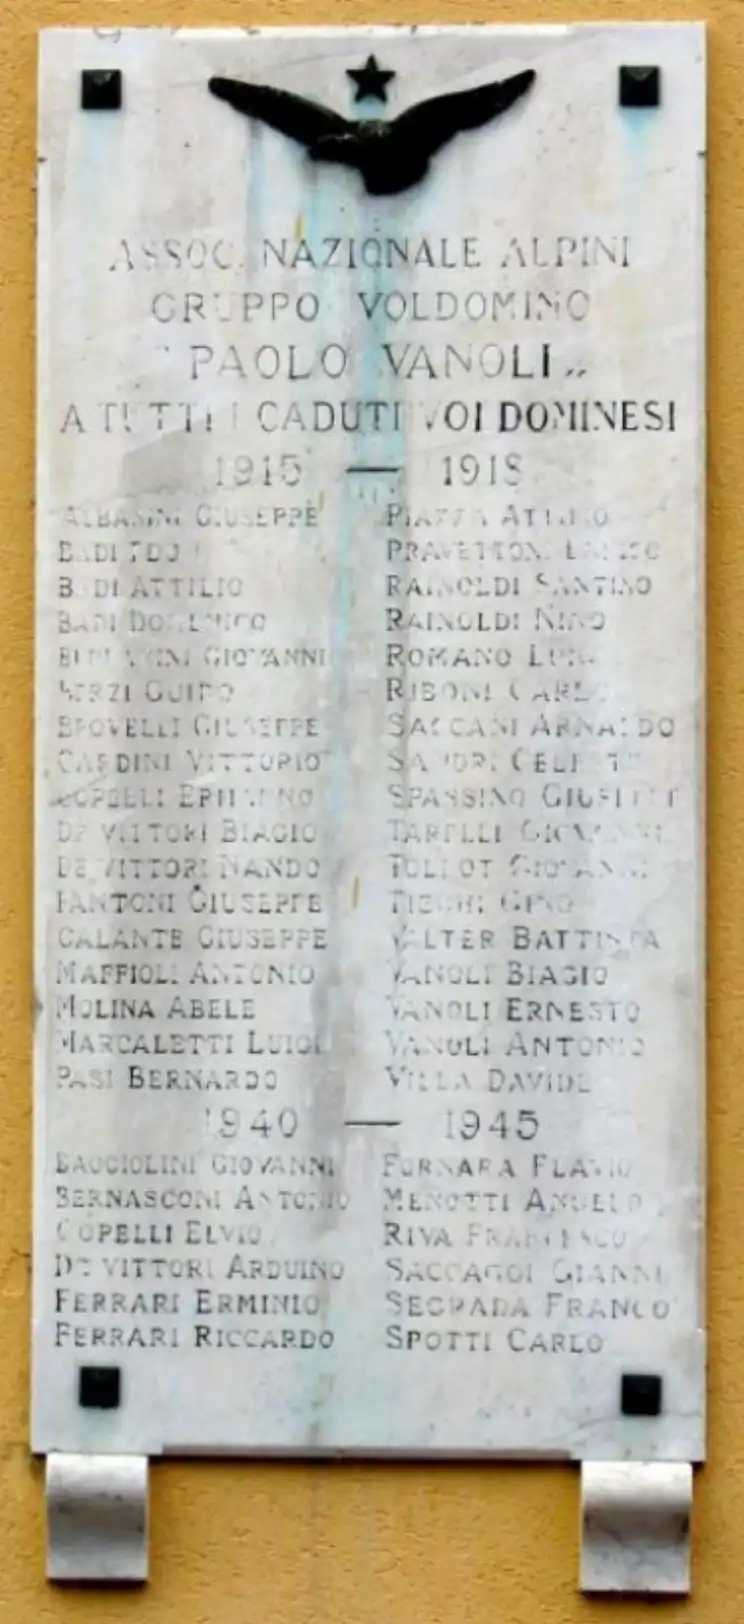 ASSOC. NAZIONALE ALPINI
GRUPPO VOLDOMINO
"PAOLO VANOLI"
A TUTTI I CADUTI VOLDOMINESI
1915 — 1918
ALBASINI GIUSEPPE
BADI
BADI ATTILIO
BADI DOMENICO
GIOVANNI
BERZI GUIDO
BROVELLI GIUSEPPE
CARDINI VITTORIO
COPELLI ERMANNO
DE VITTORI BIAGIO
DE VITTORI NANDO
FANTONI GIUSEPPE
GALANTE GIUSEPPE
MAFFIOLI ANTONIO
MOLINA ABELE
MARCALETTI LUIGI
PASI BERNARDO
PIAZZA ATTILIO
PRAVETTONI
RAINOLDI SANTINO
RAINOLDI NINO
ROMANO LUIGI
RIBONI CARLO
SACCANI ARNALDO
SANDRI CELESTE
SPASSINO GIUSEPPE
TARELLI GIOVANNI
GIOVANNI
TIEGHI GINO
VALTER BATTISTA
VANOLI BIAGIO
VANOLI ERNESTO
VANOLI ANTONIO
VILLA DAVIDE
1940 — 1945
BAGGIOLINI GIOVANNI
BERNASCONI ANTONIO
COPELLI ELVIO
DE VITTORI ARDUINO
FERRARI ERMINIO
FERRARI RICCARDO
FORNARA FLAVIO
MENOTTI ANGELO
RIVA FRANCESCO
SACCAGGI GIANNI
SEGRADA FRANCO
SPOTTI CARLO